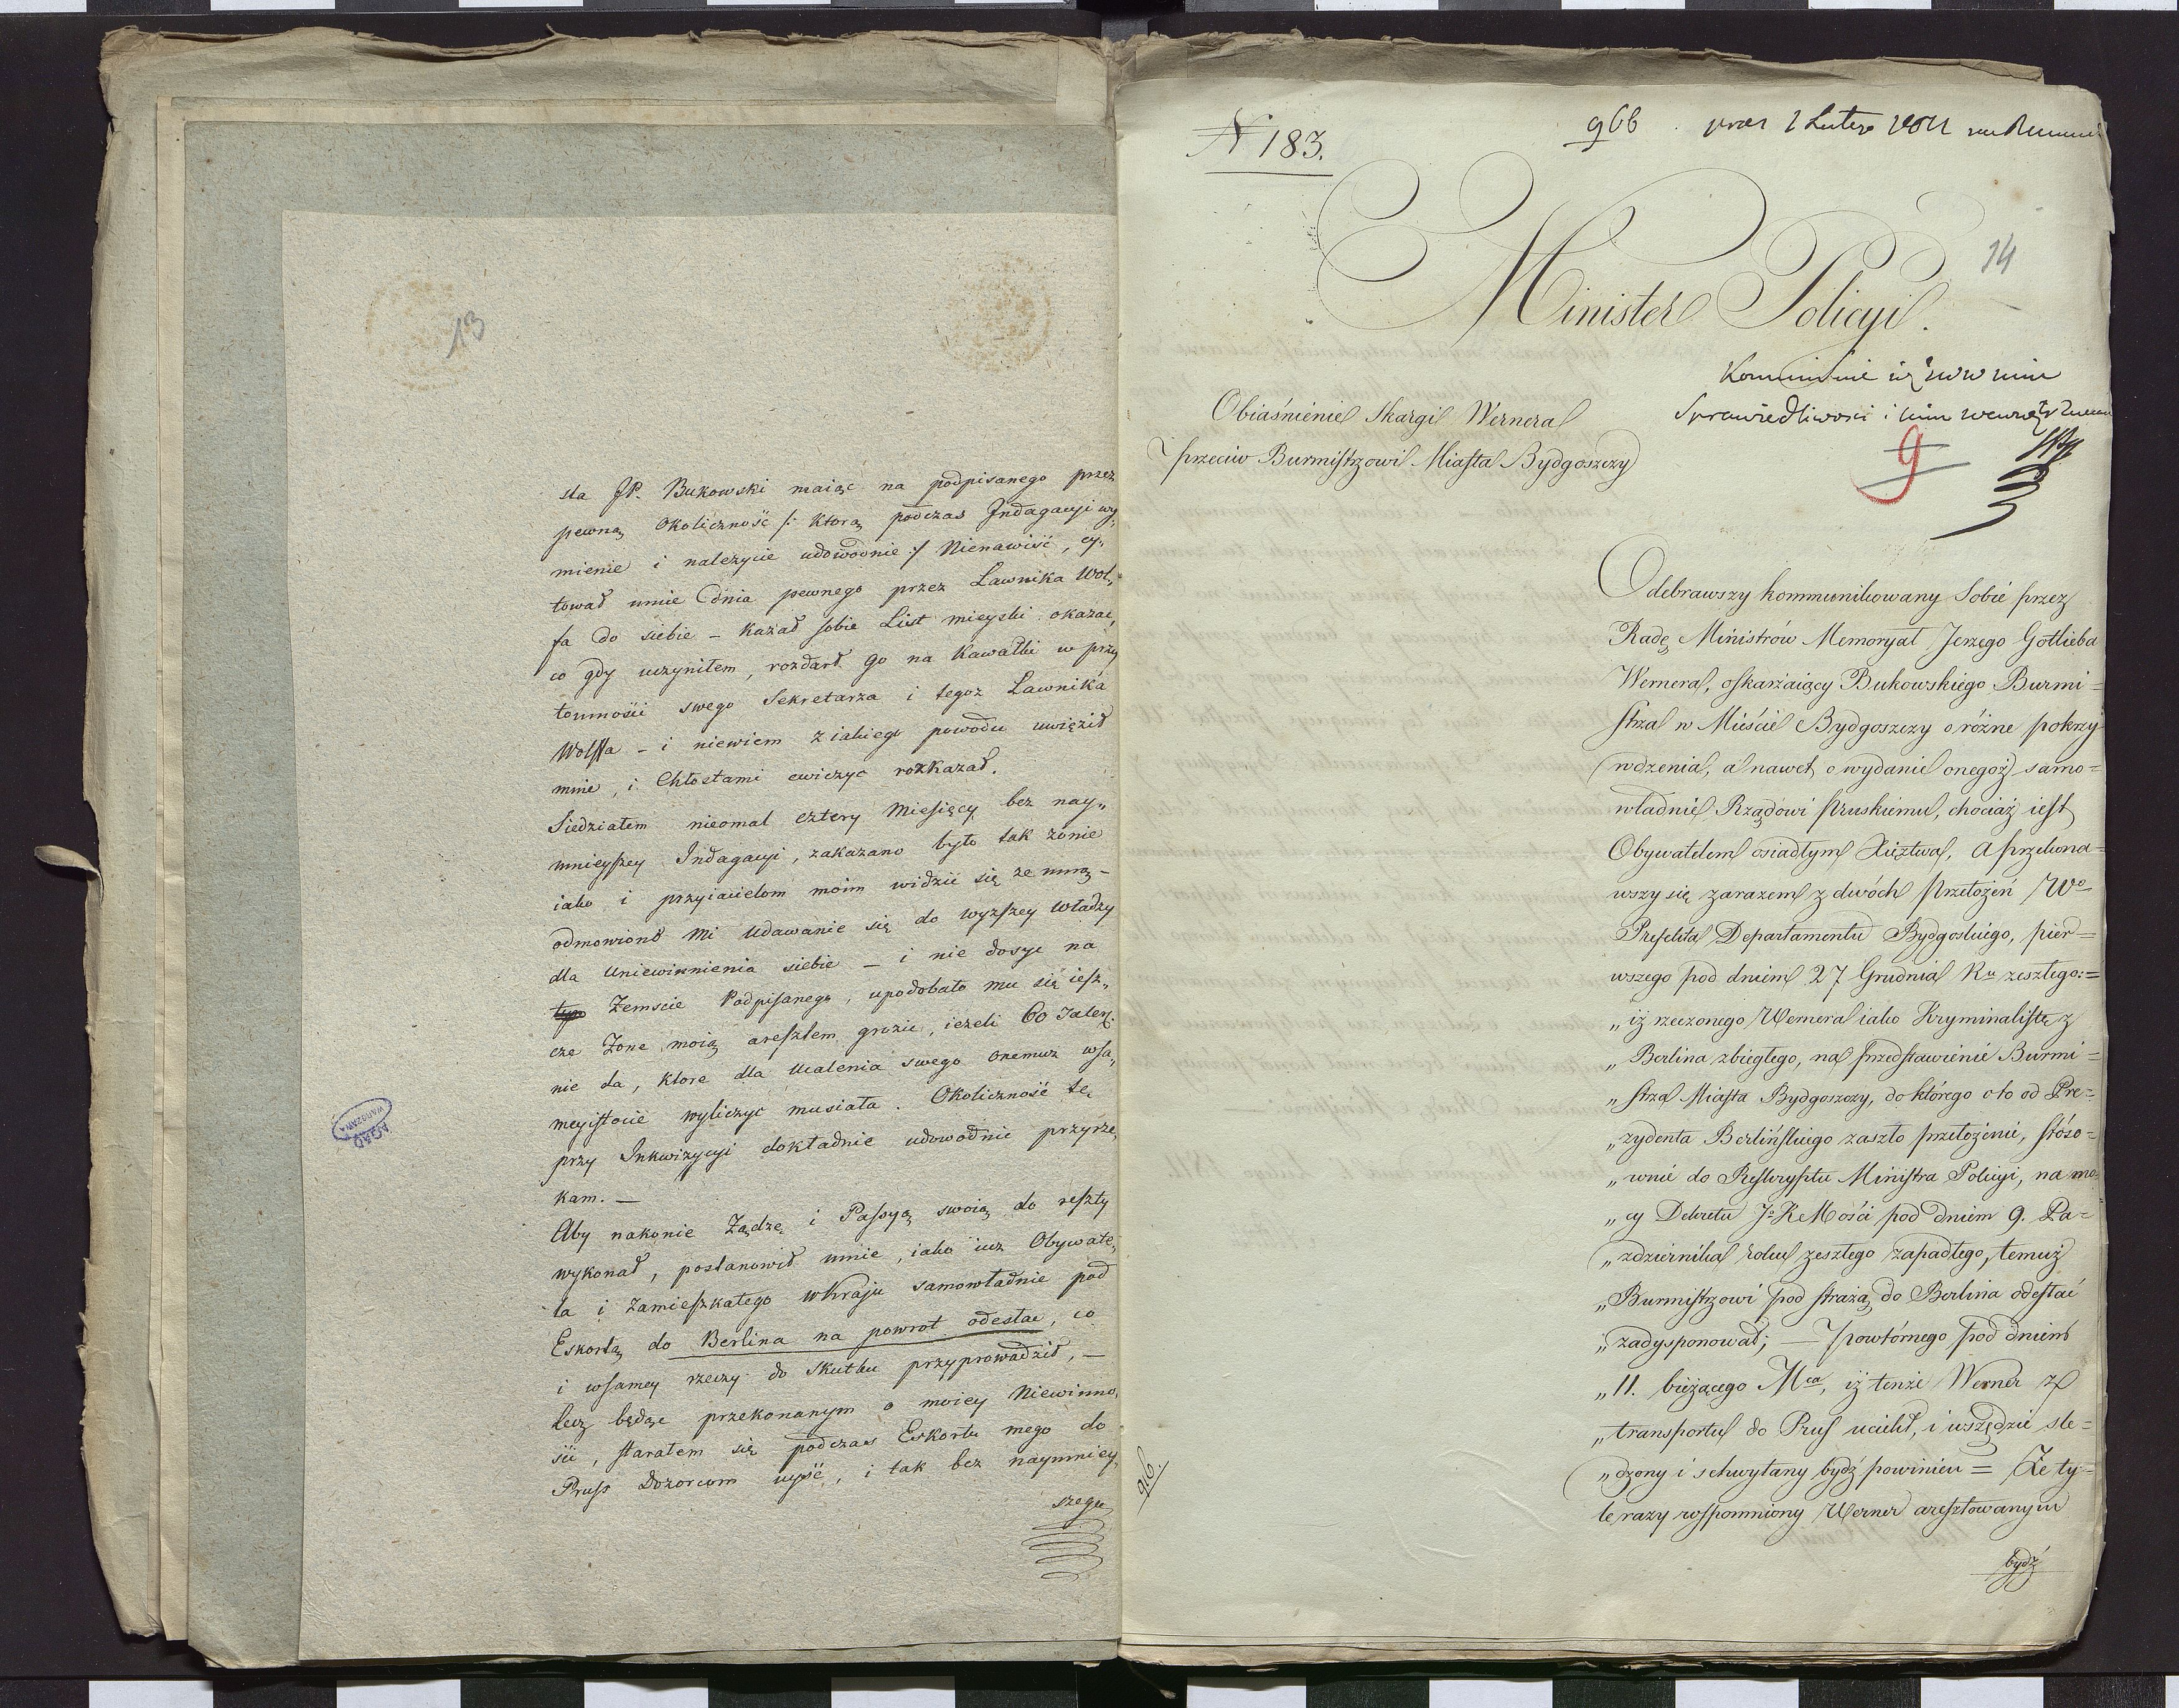 13
sta JP. Bukowski maiąc na podpisanego przez
pewną Okoliczność /: ktorą podczas Indagacyi wy„
mienie i nalezycie udowodnie :/ Nienawiść, cy„
tował mnie dnia pewnego przez Ławnika Wol„
fa do siebie – kazał sobie List mieyski okazać,
co gdy uczyniłem, rozdarł go na kawałki w przy
tomności swego Sekretarza i tegoż Ławnika
Wolffa – i niewiem z iakiego powodu uwięził
mnie, i Chłostami cwiczyc rozkazał.
Siedziałem nieomal cztery Miesięcy bez nay„
mnieyszey Indagacyi, zakazano było tak żonie
iako i przyiacielom moim widzić się ze mną –
odmowiono mi udawanie się do wyzszey Władzy
dla Uniewinnienia siebie – i nie dosyc na
Zemscie Podpisanego, upodobało mu się iesz„
cze Zone moią aresztem grozic, ieżeli 60 Taler.
nie da, ktore dla Ucalenia swego onemuz wsa„
meyistocie wyliczyc musiała. Okoliczność tę
przy Inkwizycyi dokładnie udowodnic przyrze„
kam. –
Aby nakonie Ządzę i Passyą swoią do reszty
wykonał, postanowił mnie, iako iuz Obywate„
la i Zamieszkałego wkraju samowładnie pod
Eskortą do Berlina na powrot odesłac, co
i wsamey rzeczy do skutku przyprowadził, –
lecz będąc przekonanym o moiey Niewinno„
ści, starałem się podczas Eskortu mego do
Pruss Dozorcom uyść, i tak bez naymniey„
szego
AGAD
WARSZAWA
N 183.
966
14
Minister Policyi.
Sprawiedliwosci i
9
Obiaśnienie Skargi Wernera
przeciw Burmistrzowi Miasta Bydgoszczy
Odebrawszy kommunikowany Sobie przez
Radę Ministrów Memoryał Jerzego Gotlieba
Wernera, oskarżaiący Bukowskiego Burmi=
strza w Mieście Bydgoszczy o różne pokrzy
wdzenia, a nawet o wydanie onegoż samo=
władnie Rządowi Pruskiemu, chociaż iest
Obywatelem osiadłym Xięztwa, a przekona=
wszy się zarazem z dwóch Przełożeń Wo
Prefekta Departamentu Bydgoskiego, pier=
wszego pod dniem 27 Grudnia Ru zeszłego:=
„iż rzeczonego Wernera iako Kryminalistę z
„Berlina zbiegłego, na przedstawienie Burmi=
„strza Miasta Bydgoszczy, do którego o to od Pre=
„zydenta Berlińskiego zaszło przełożenie, stóso=
„wnie do Reskryptu Ministra Policyi, na mo=
„cy Dekretu Jo KMości pod dniem 9. Pa=
„zdziernika roku zeszłego zapadłego, temuż
„Burmistrzowi pod strażą do Berlina odesłać
„zadysponował; – powtórnego pod dniem
„11. bieżącego Mca, iż tenże Werner z
„transportu do Prus uciekł, i wszędzie sle=
„dzony i schwytany bydź powinien = Że ty=
le razy wspomniony Werner aresztowanym
bydź